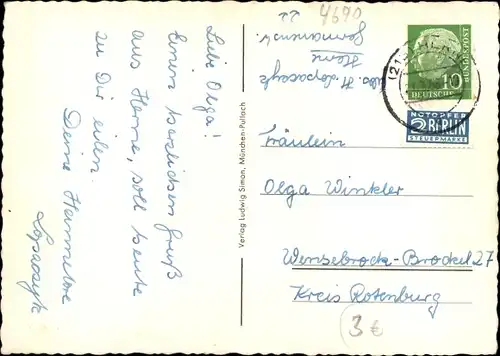 Liebe Olga!
Einen herzlichen Gruß
aus Herne, soll heute
zu Dir eilen.
Deine Hannelore
Lopaczyk
Verlag Ludwig Simon, München-Pullach
22
4690
Herne
H. Lopaczyk
10
DEUTSCHE
BUNDESPOST
NOTOPFER
2 BERLIN
STEUERMARKE
Fräulein
Olga Winkler
Wensebrock-Brockel 27
Kreis Rotenburg
3 €